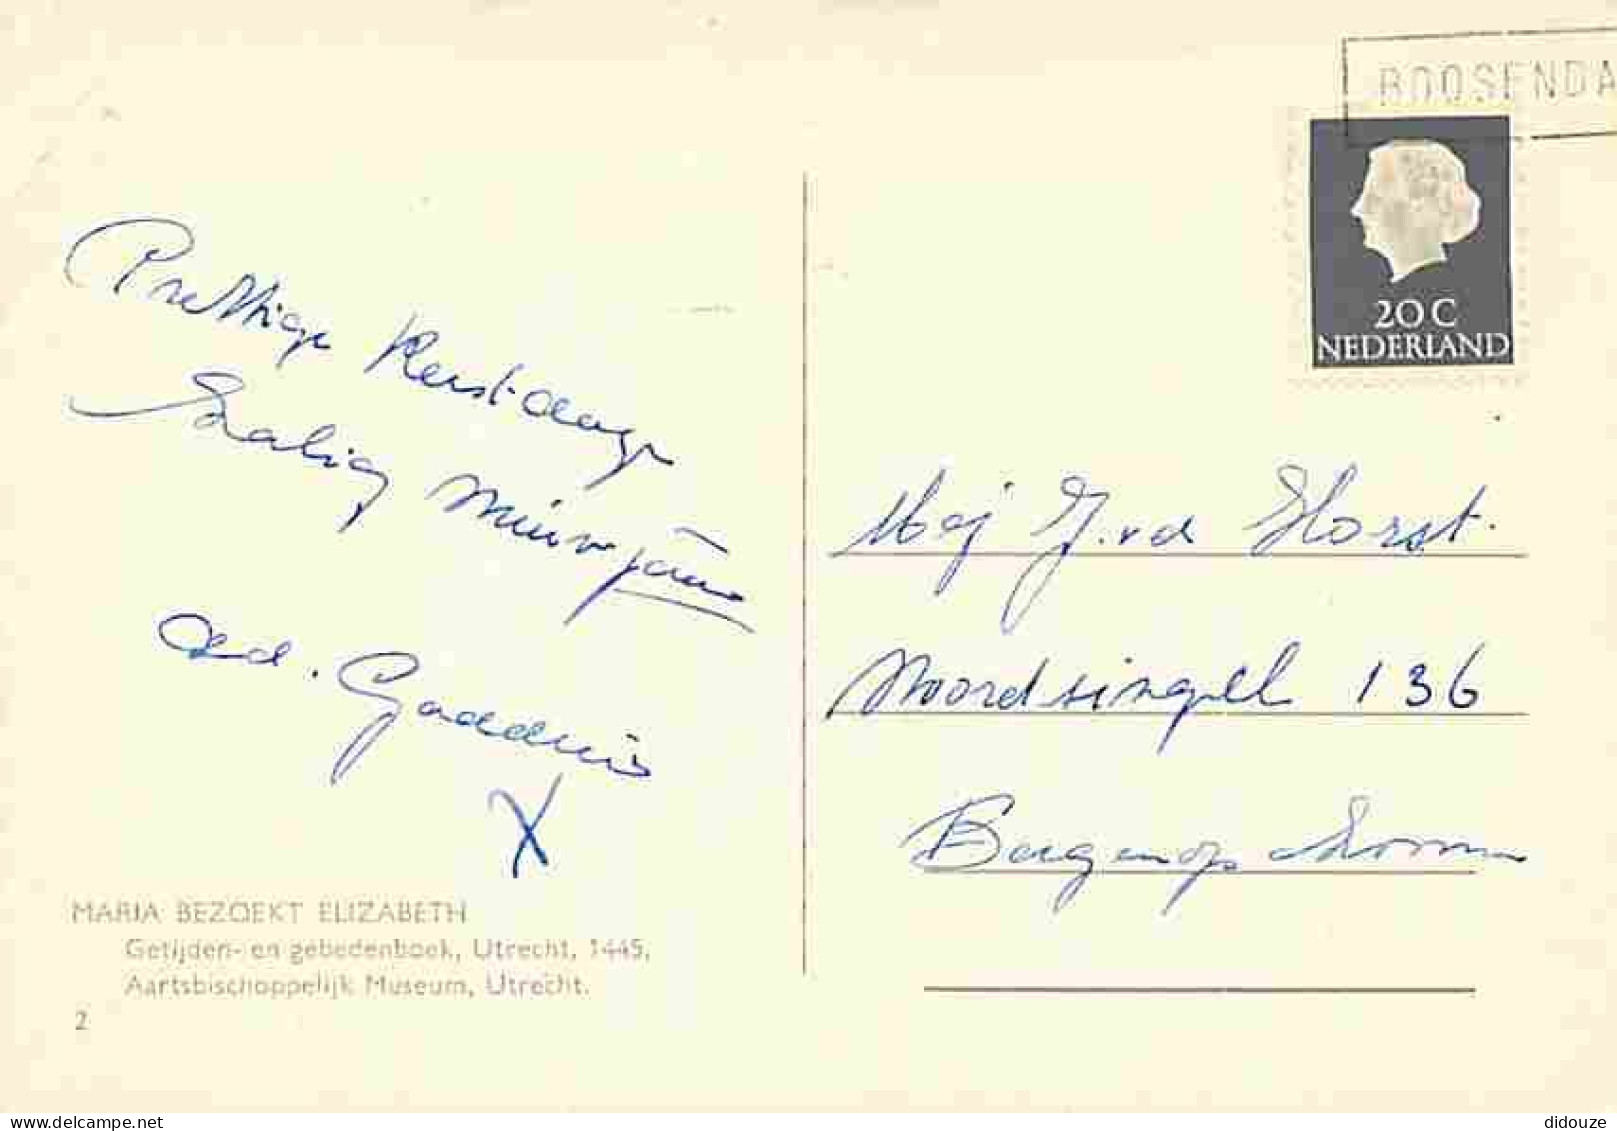 Prettige Kerst-dage
Zalig Nieuwjaar
Ad.
X
MARIA BEZOEKT ELIZABETH
Getijden- en gebedenboek, Utrecht, 1445,
Aartsbischoppelijk Museum, Utrecht.
2
ROOSENDA
20 C
NEDERLAND
Mej J. vd Horst.
Noordsingel 136
Bergen op Zoom
delcampe.net
didouze